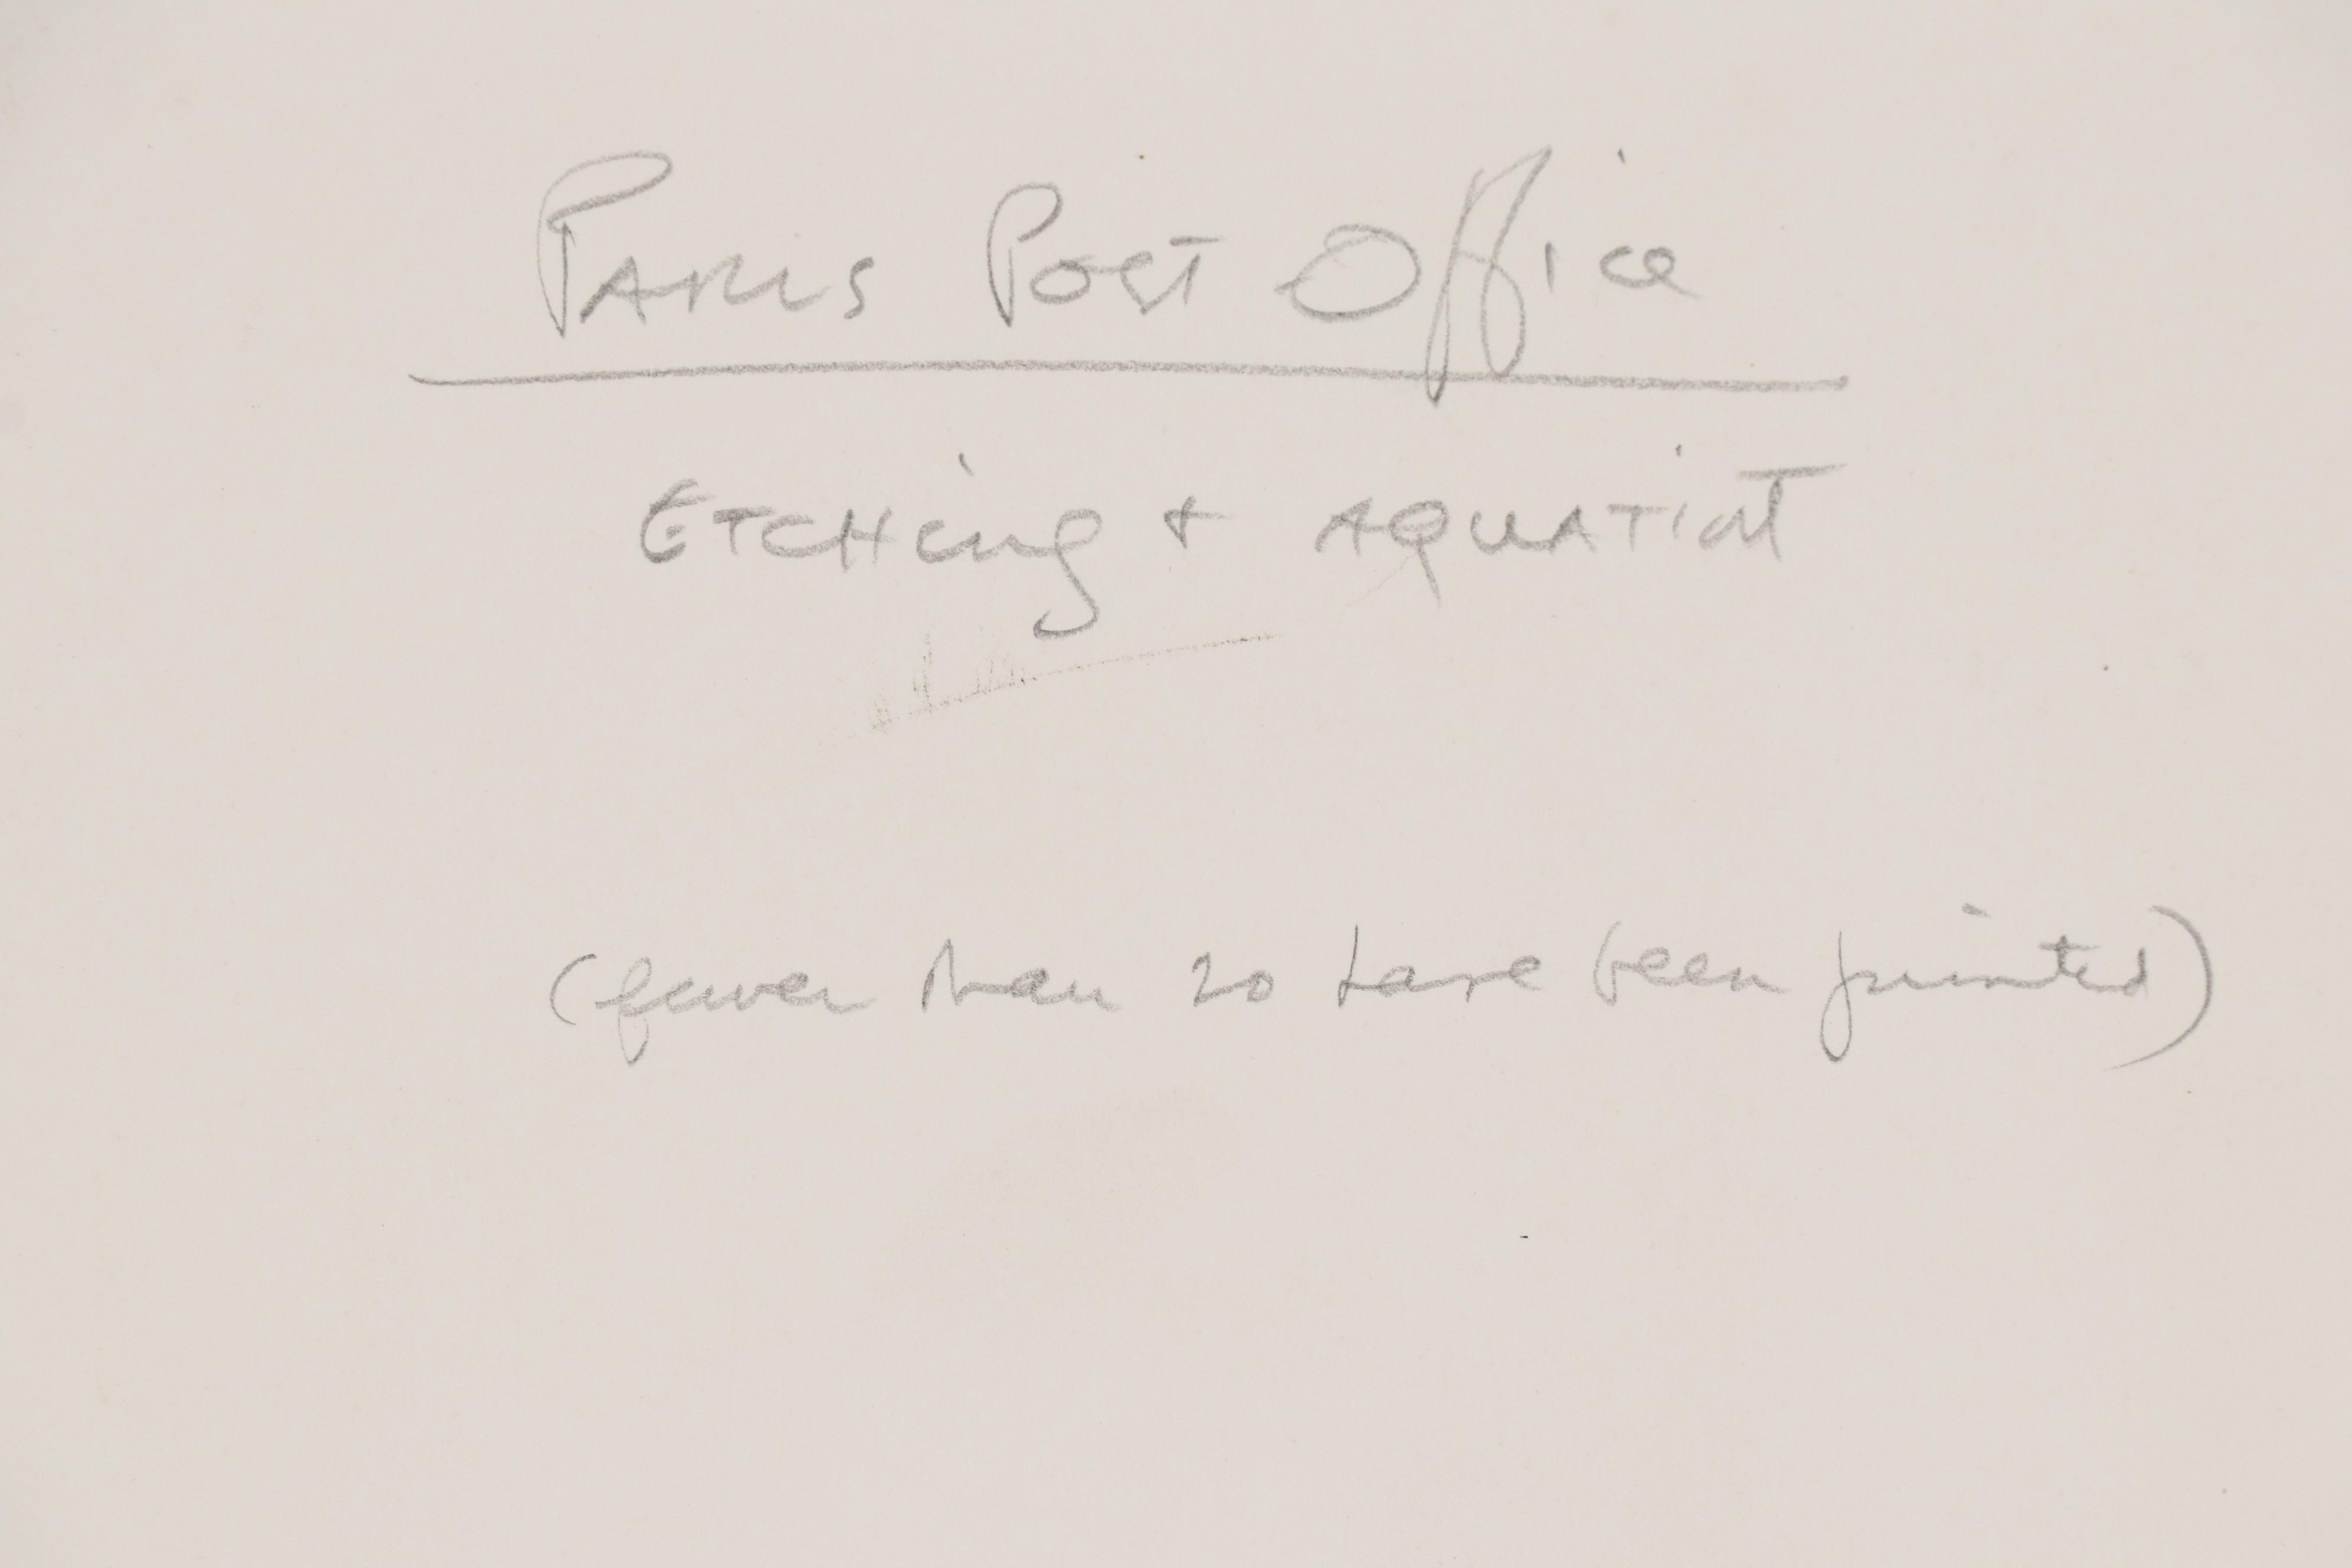 Paris Post Office
Etching + Aquatint
(fewer than 20 have been printed)